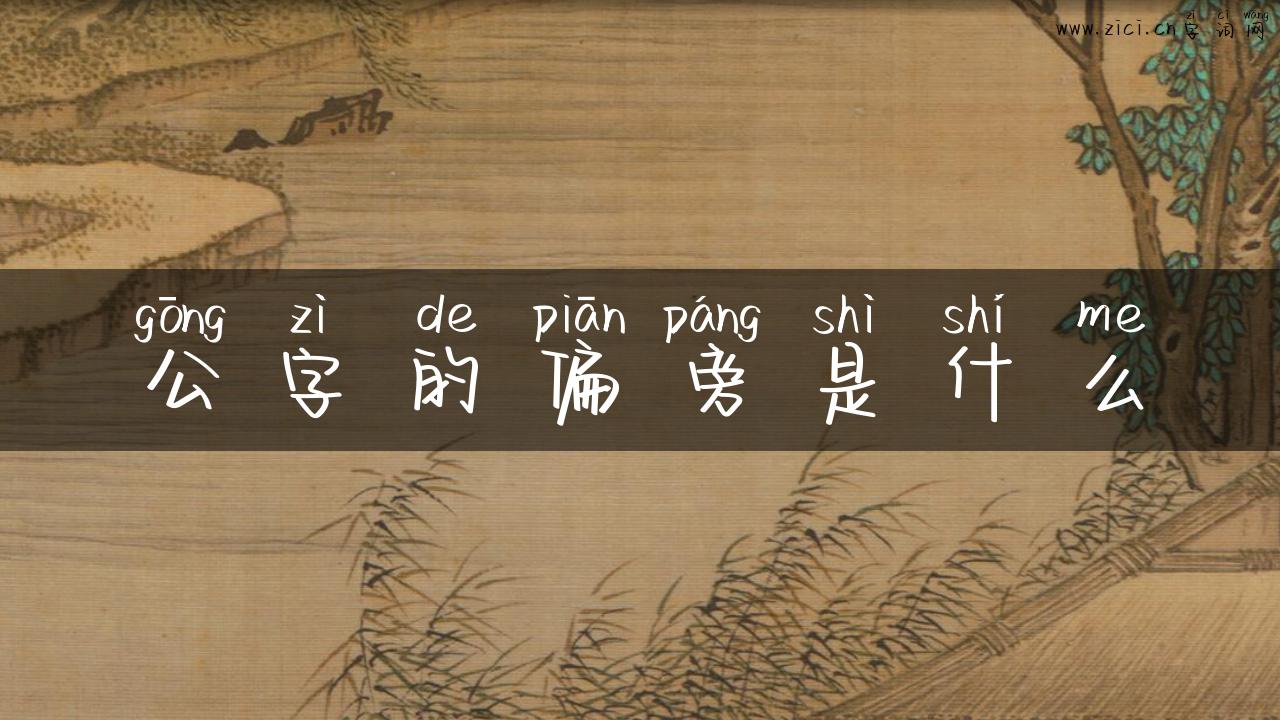 zì cí wǎng
www.zici.cn字词网
gōng zì de piān páng shì shí me
公字的偏旁是什么